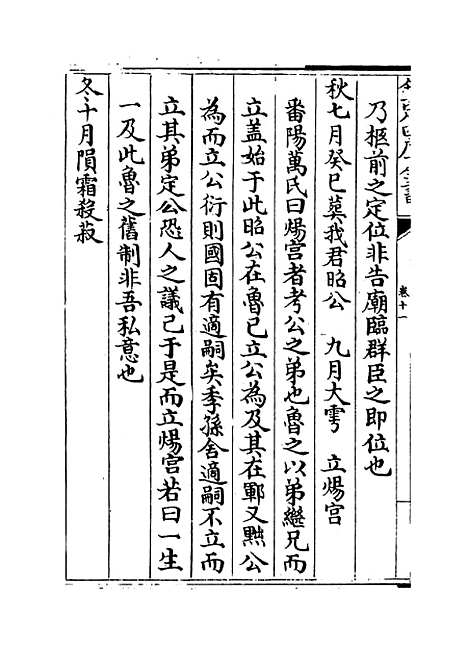 卷十一
乃柩前之定位非告廟臨群臣之即位也
秋七月癸巳葬我君昭公　九月大雩　立煬宫
番陽萬氏曰煬宫者考公之弟也魯之以弟繼兄而
立蓋始于此昭公在魯已立公為及其在鄆又黜公
為而立公衍則國固有適嗣矣季孫舍適嗣不立而
立其弟定公恐人之議己于是而立煬宫若曰一生
一及此魯之舊制非吾私意也
冬十月隕霜殺菽